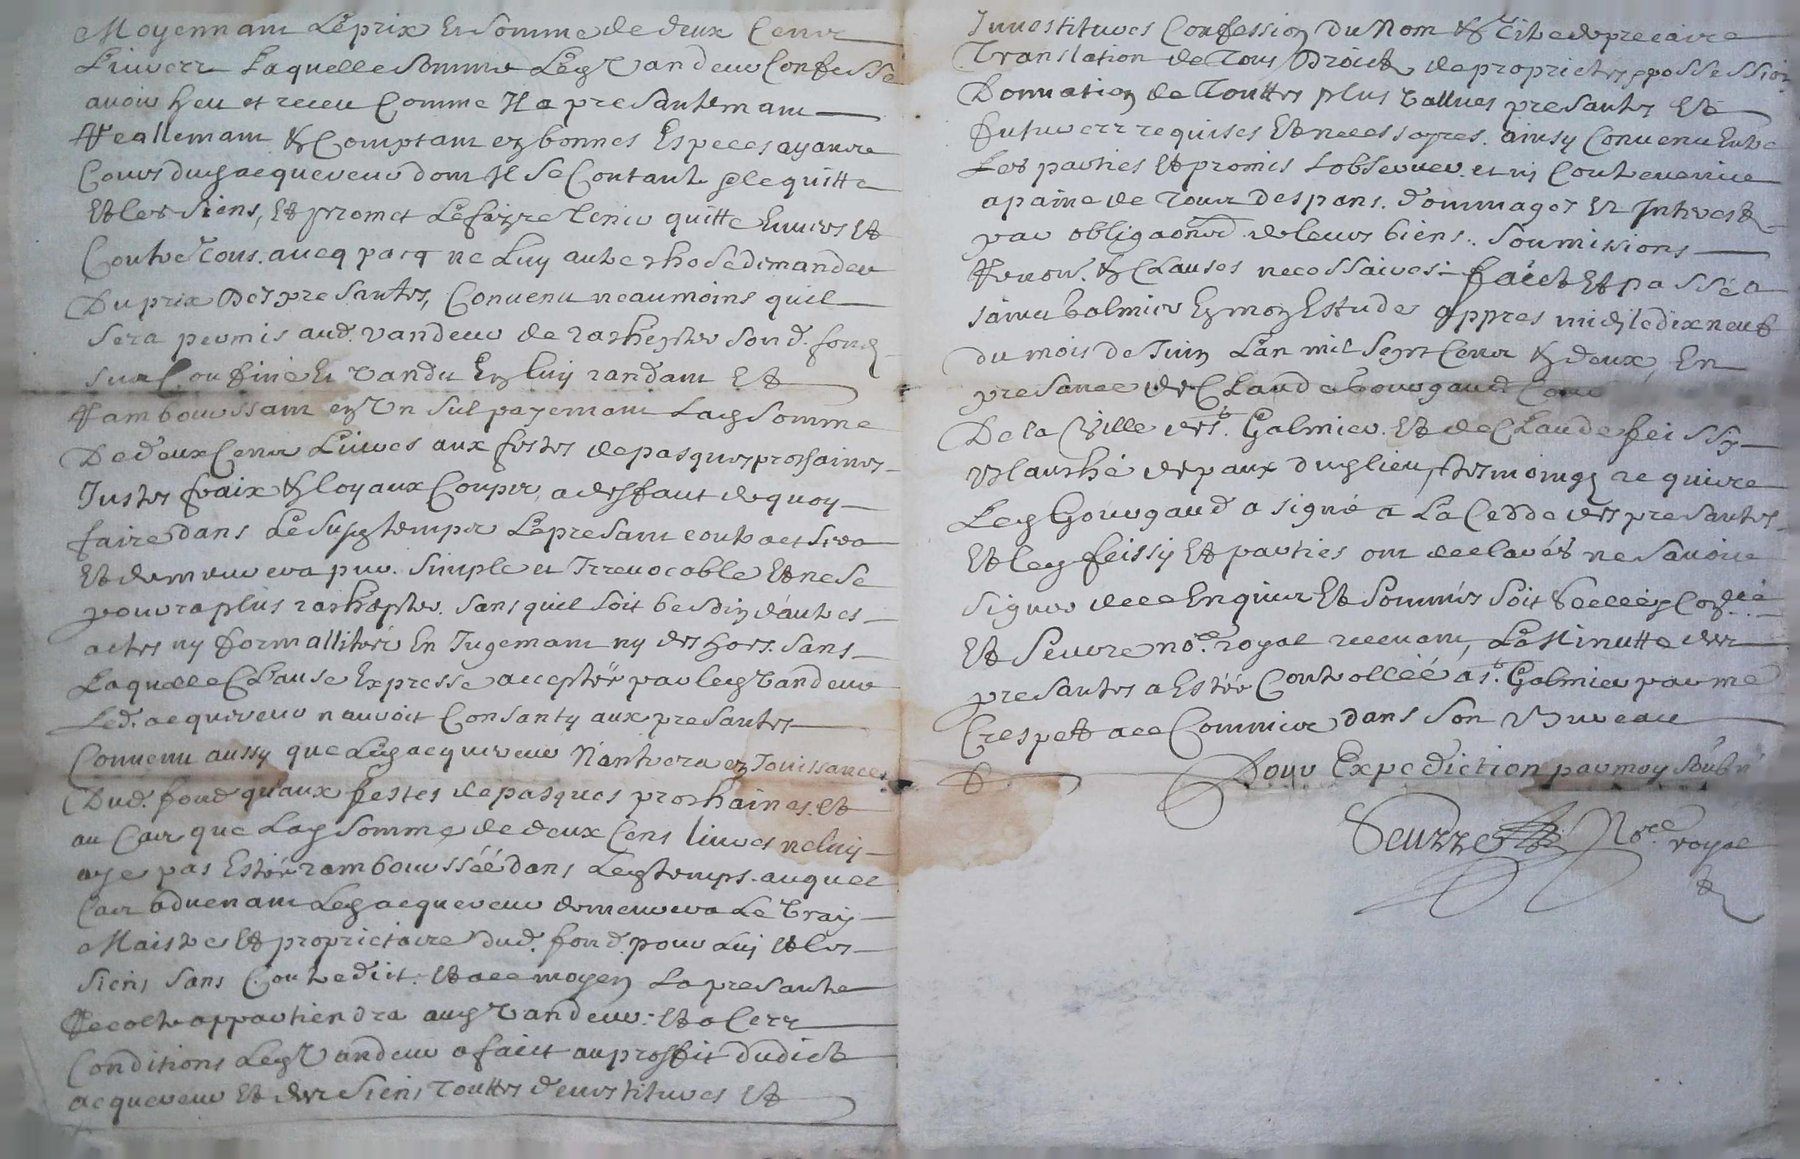 Moyennant Le prix Et Somme de deux Cent
Livres Laquelle Somme Led Vandeur Confesse
avoir heu et receu Comme Il a presantemant
Reallemant & Comptant en bonnes Especes ayantz
Cours dud acquereur dont Il Se Contant & le quitte
Et les Siens, Et promet Le faire tenir quitte Envers Et
Contre Tous. avecq pacq ne Luy autre chose demander
Du prix Des presantes, Convenu neaumoins quil
Sera permis aud. Vandeur de rachepter Sond. fond
Sur Confiné Et Vandu En luy randant Et
Ramboursant en Un Sul payemant Lad Somme
De deux Cent Livres aux festes de pasques prochaines
Justes fraix & loyaux Coupts, a desfaut de quoy
faire dans Le Susd temps Le presant contract Sera
Et demeurera pur. Simple et Irrevocable Et ne Se
pourra plus rachepter. Sans quil Soit besoin d'autres
actes ny formallités En Jugemant ny dehors. Sans
Laquelle Clause Expresse acceptée par led Vandeur
Led. acquereur n'auroit Consanty aux presantes
Convenu aussy que Led acquereur N'antrera en Jouissance
Dud. fond qu'aux festes de pasques prochaines. Et
au Cas que Lad Somme de deux Cens livres ne luy
aye pas Estée rambourssée dans Led temps. auquel
Cas advenant Led acquereur demeurera Le Vray
Maistre Et proprietaire dud. fond pour Luy Et les
Siens Sans Contredict. Et a ce moyen La presante
Recolte appartiendra aud Vandeur. Et a Ces
Conditions Led Vandeur a faict au proffit dudict
acquereur Et des Siens Touttes devestitures Et
Investitures Confession Du Nom & Titre de precaire
Translation de Tous Droictz de proprietez possession
Donnation de Touttes plus Vallues presantes Et
futures requises Et necessaires. ainsy Convenu Entre
Les parties Et promis Lobserver. et ny Contrevenir
a paine de Tous Despans. dommages Et Interestz
par obligaond de leurs biens. Soumissions
Renons. & Clauses necessaires. faict Et passé a
Sainct Galmier En mon Estude appres midy le dix neuf
du mois de Juin Lan mil Sept Cent & deux, En
presance de Claude Gourgaud
De la Ville de St. Galmier. Et de Claude feissy
dud lieu, tesmoingz require
Led Gourgaud a signé a La Cedde des presantes
Et led feissy Et parties ont declarés ne Savoir
Signer de ce Enquis Et Sommés Soit
Et Seuvre nore. royal recevant, La Minutte des
presantes a Estée Controllée a St. Galmier par me
Crespet a ce Commis dans Son Bureau
Pour Expediction par moy Soubné
Seuvre Nore royal